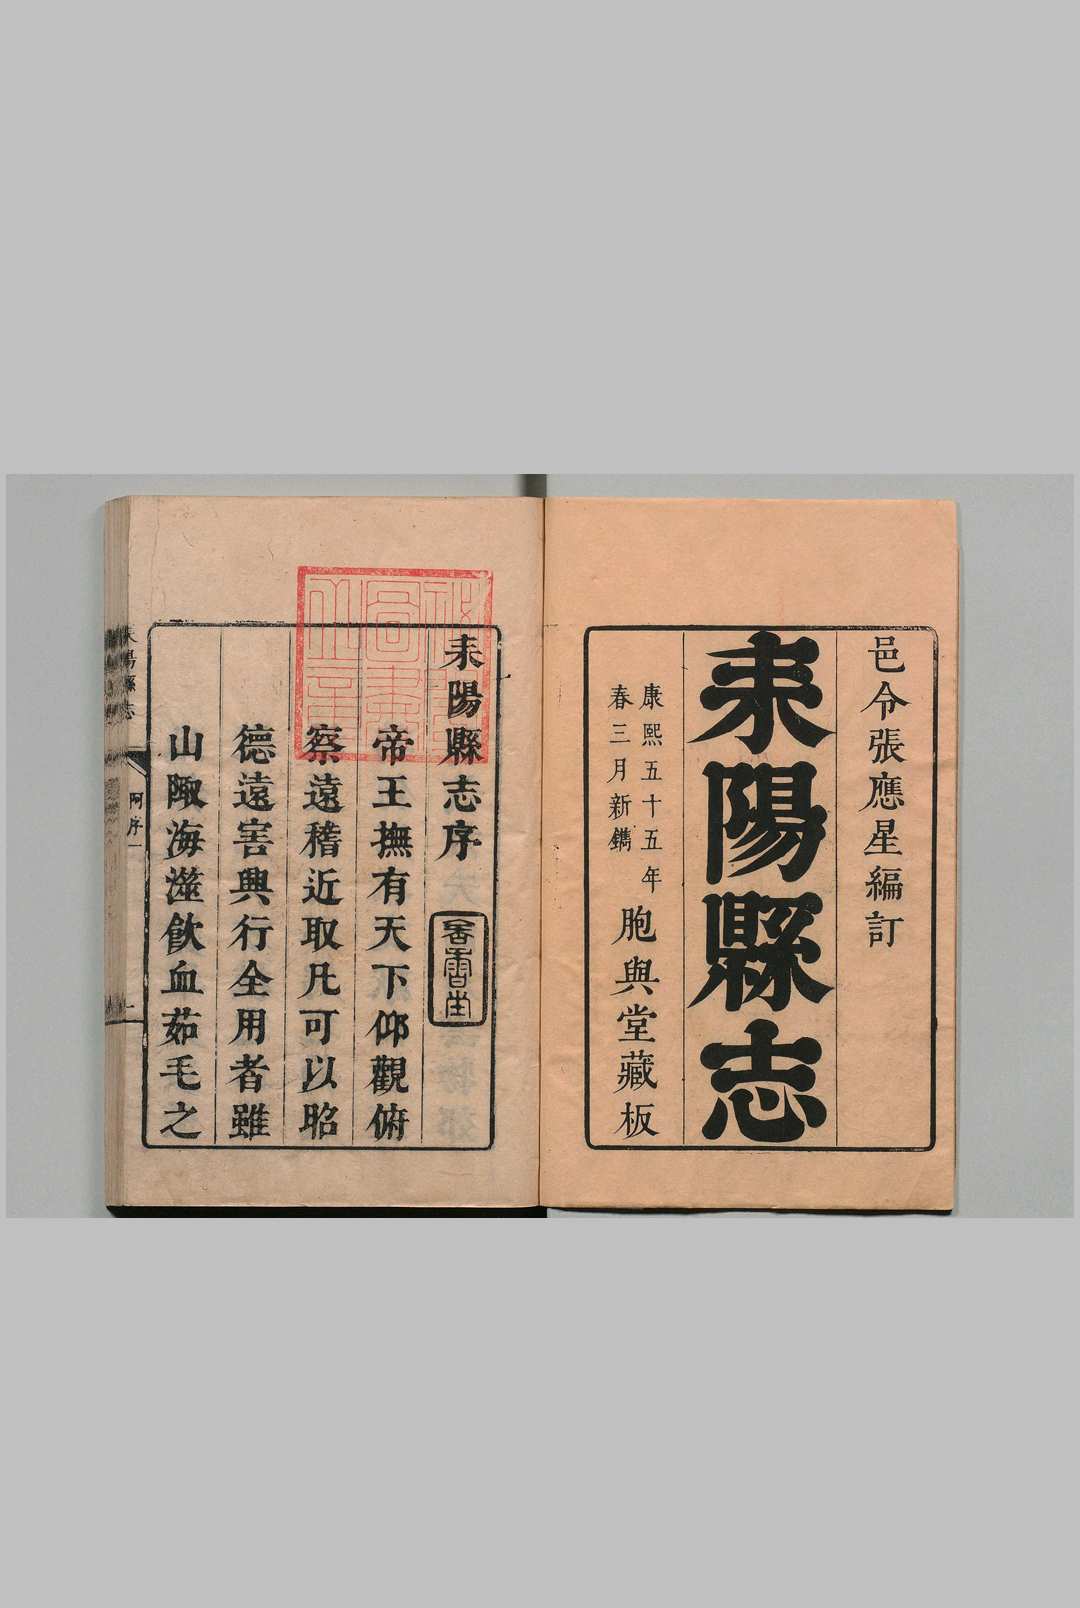 邑令張應星編訂
耒陽縣志
康熙五十五年
春三月新鐫
胞與堂藏板
耒陽縣志序
帝王撫有天下仰觀俯
察遠稽近取凡可以昭
德遠害興行全用者雖
山陬海澨飲血茹毛之
耒陽縣志
阿序
一